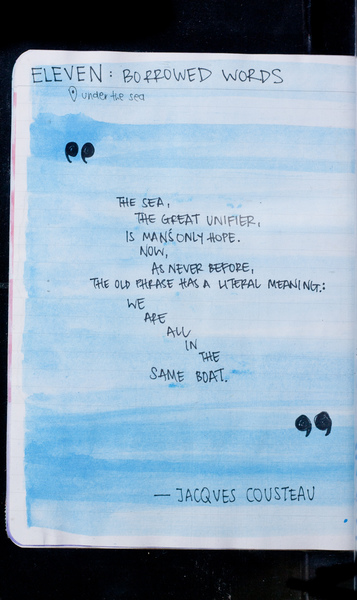 ELEVEN: BORROWED WORDS
under the sea
"
THE SEA,
THE GREAT UNIFIER,
IS MAN'S ONLY HOPE.
NOW,
AS NEVER BEFORE,
THE OLD PHRASE HAS A LITERAL MEANING:
WE
ARE
ALL
IN
THE
SAME BOAT.
"
— JACQUES COUSTEAU